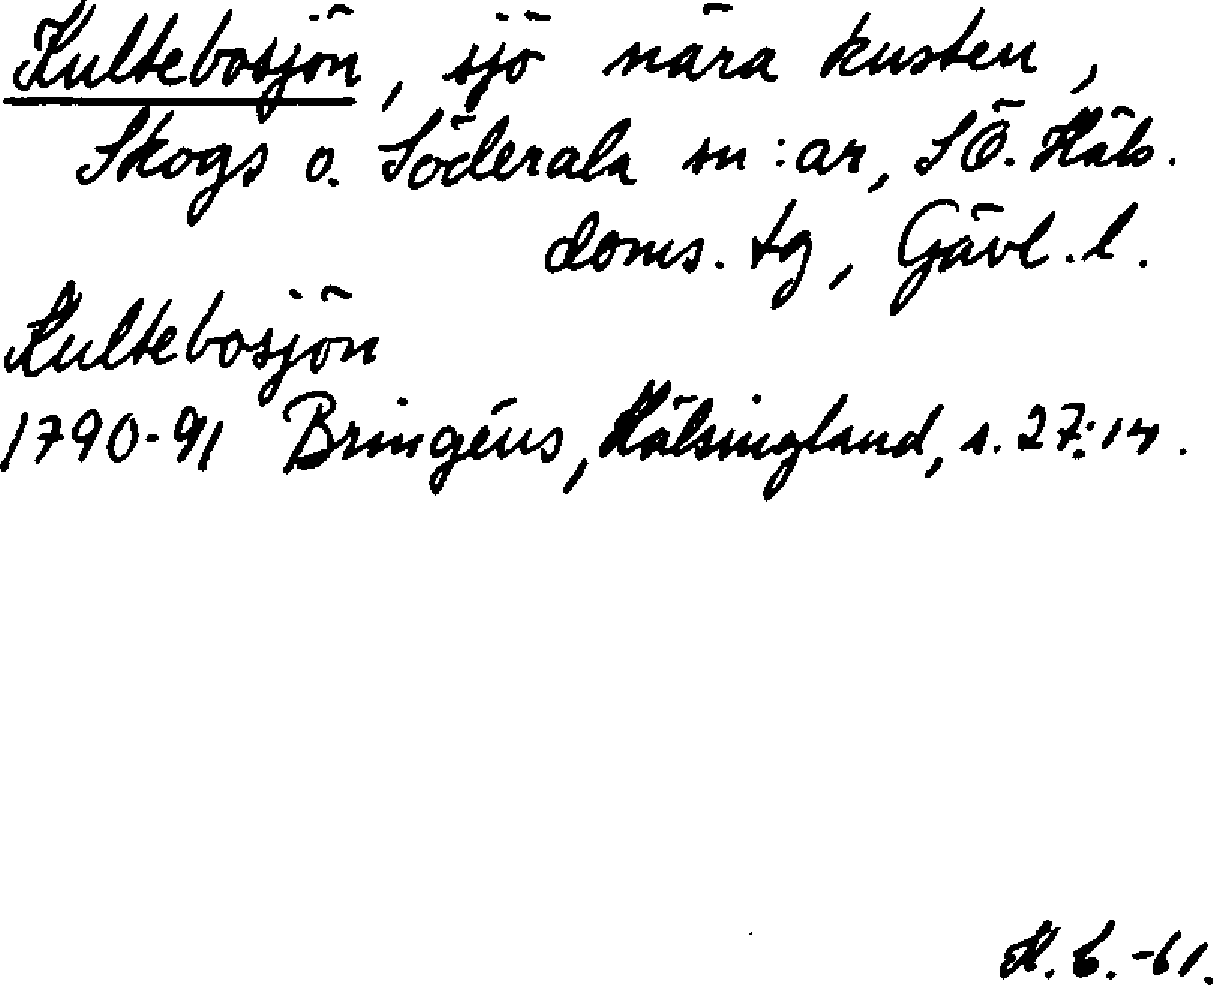 Kultebosjön, sjö nära kusten,
Skogs o. Söderala sn:ar, SÖ. Häls.
doms. tg, Gävl. l.
Kultebosjön
1790-91 Bringéus, Hälsingland, s. 27:14.
H. b. -61.